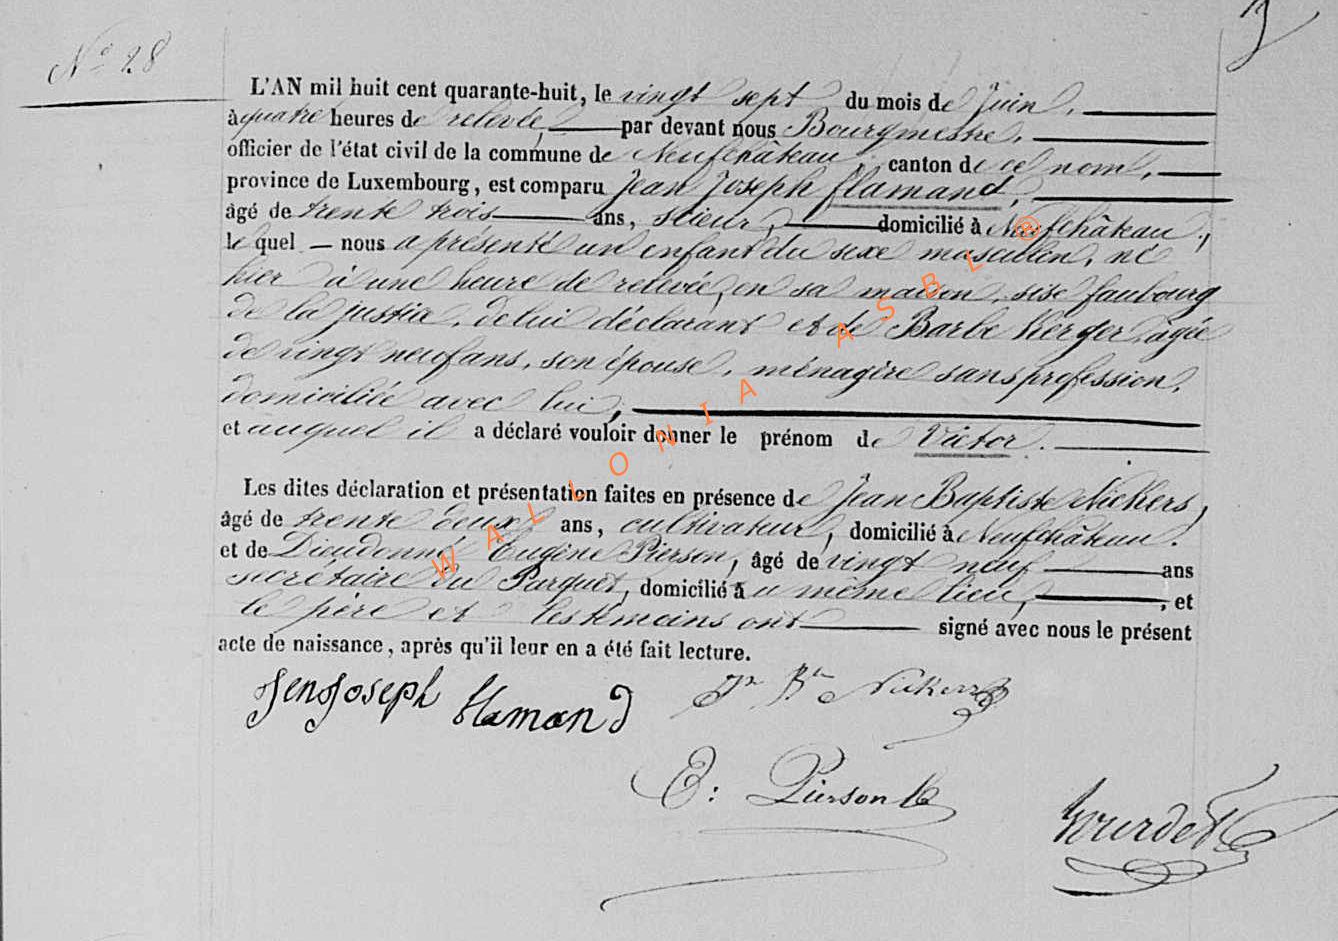 Nº 28
L'AN mil huit cent quarante-huit, le vingt sept du mois de Juin,
à quatre heures de relevée, par devant nous Bourgmestre,
officier de l'état civil de la commune de Neufchâteau, canton de ce nom,
province de Luxembourg, est comparu Jean Joseph Flamand,
âgé de trente trois ans, scieur, domicilié à Neufchâteau,
le quel nous a présenté un enfant du sexe masculin, né
hier à une heure de relevée, en sa maison, sise faubourg
de la justice, de lui déclarant et de Barbe Kerger, agée
de vingt neuf ans, son épouse, ménagère sans profession,
domiciliée avec lui,
et auquel il a déclaré vouloir donner le prénom de Victor.
Les dites déclaration et présentation faites en présence de Jean Baptiste Nickers,
âgé de trente deux ans, cultivateur, domicilié à Neufchâteau.
et de Dieudonné Eugène Pierson, âgé de vingt neuf ans
secrétaire du Parquet, domicilié au même lieu, , et
le père et les témoins ont signé avec nous le présent
acte de naissance, après qu'il leur en a été fait lecture.
JenJoseph flamand Jn Bte Nickers
E: Pierson
WALLONIA ASBL ®